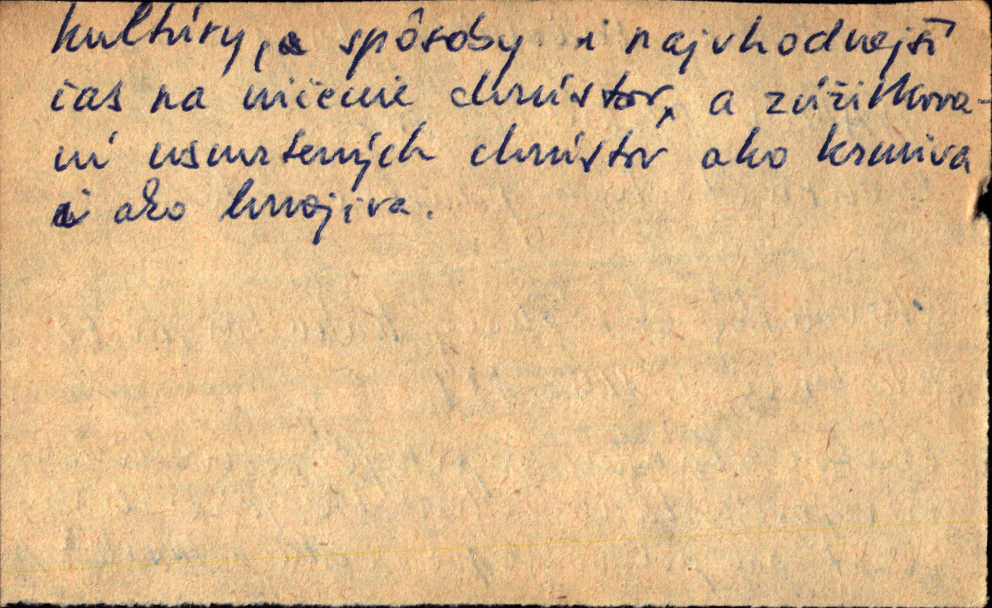 kultúry, a spôsoby i najvhodnejší
čas na ničenie chrústov, a zúžitkova-
ní usmrtených chrústov ako krmiva
i ako hnojiva.